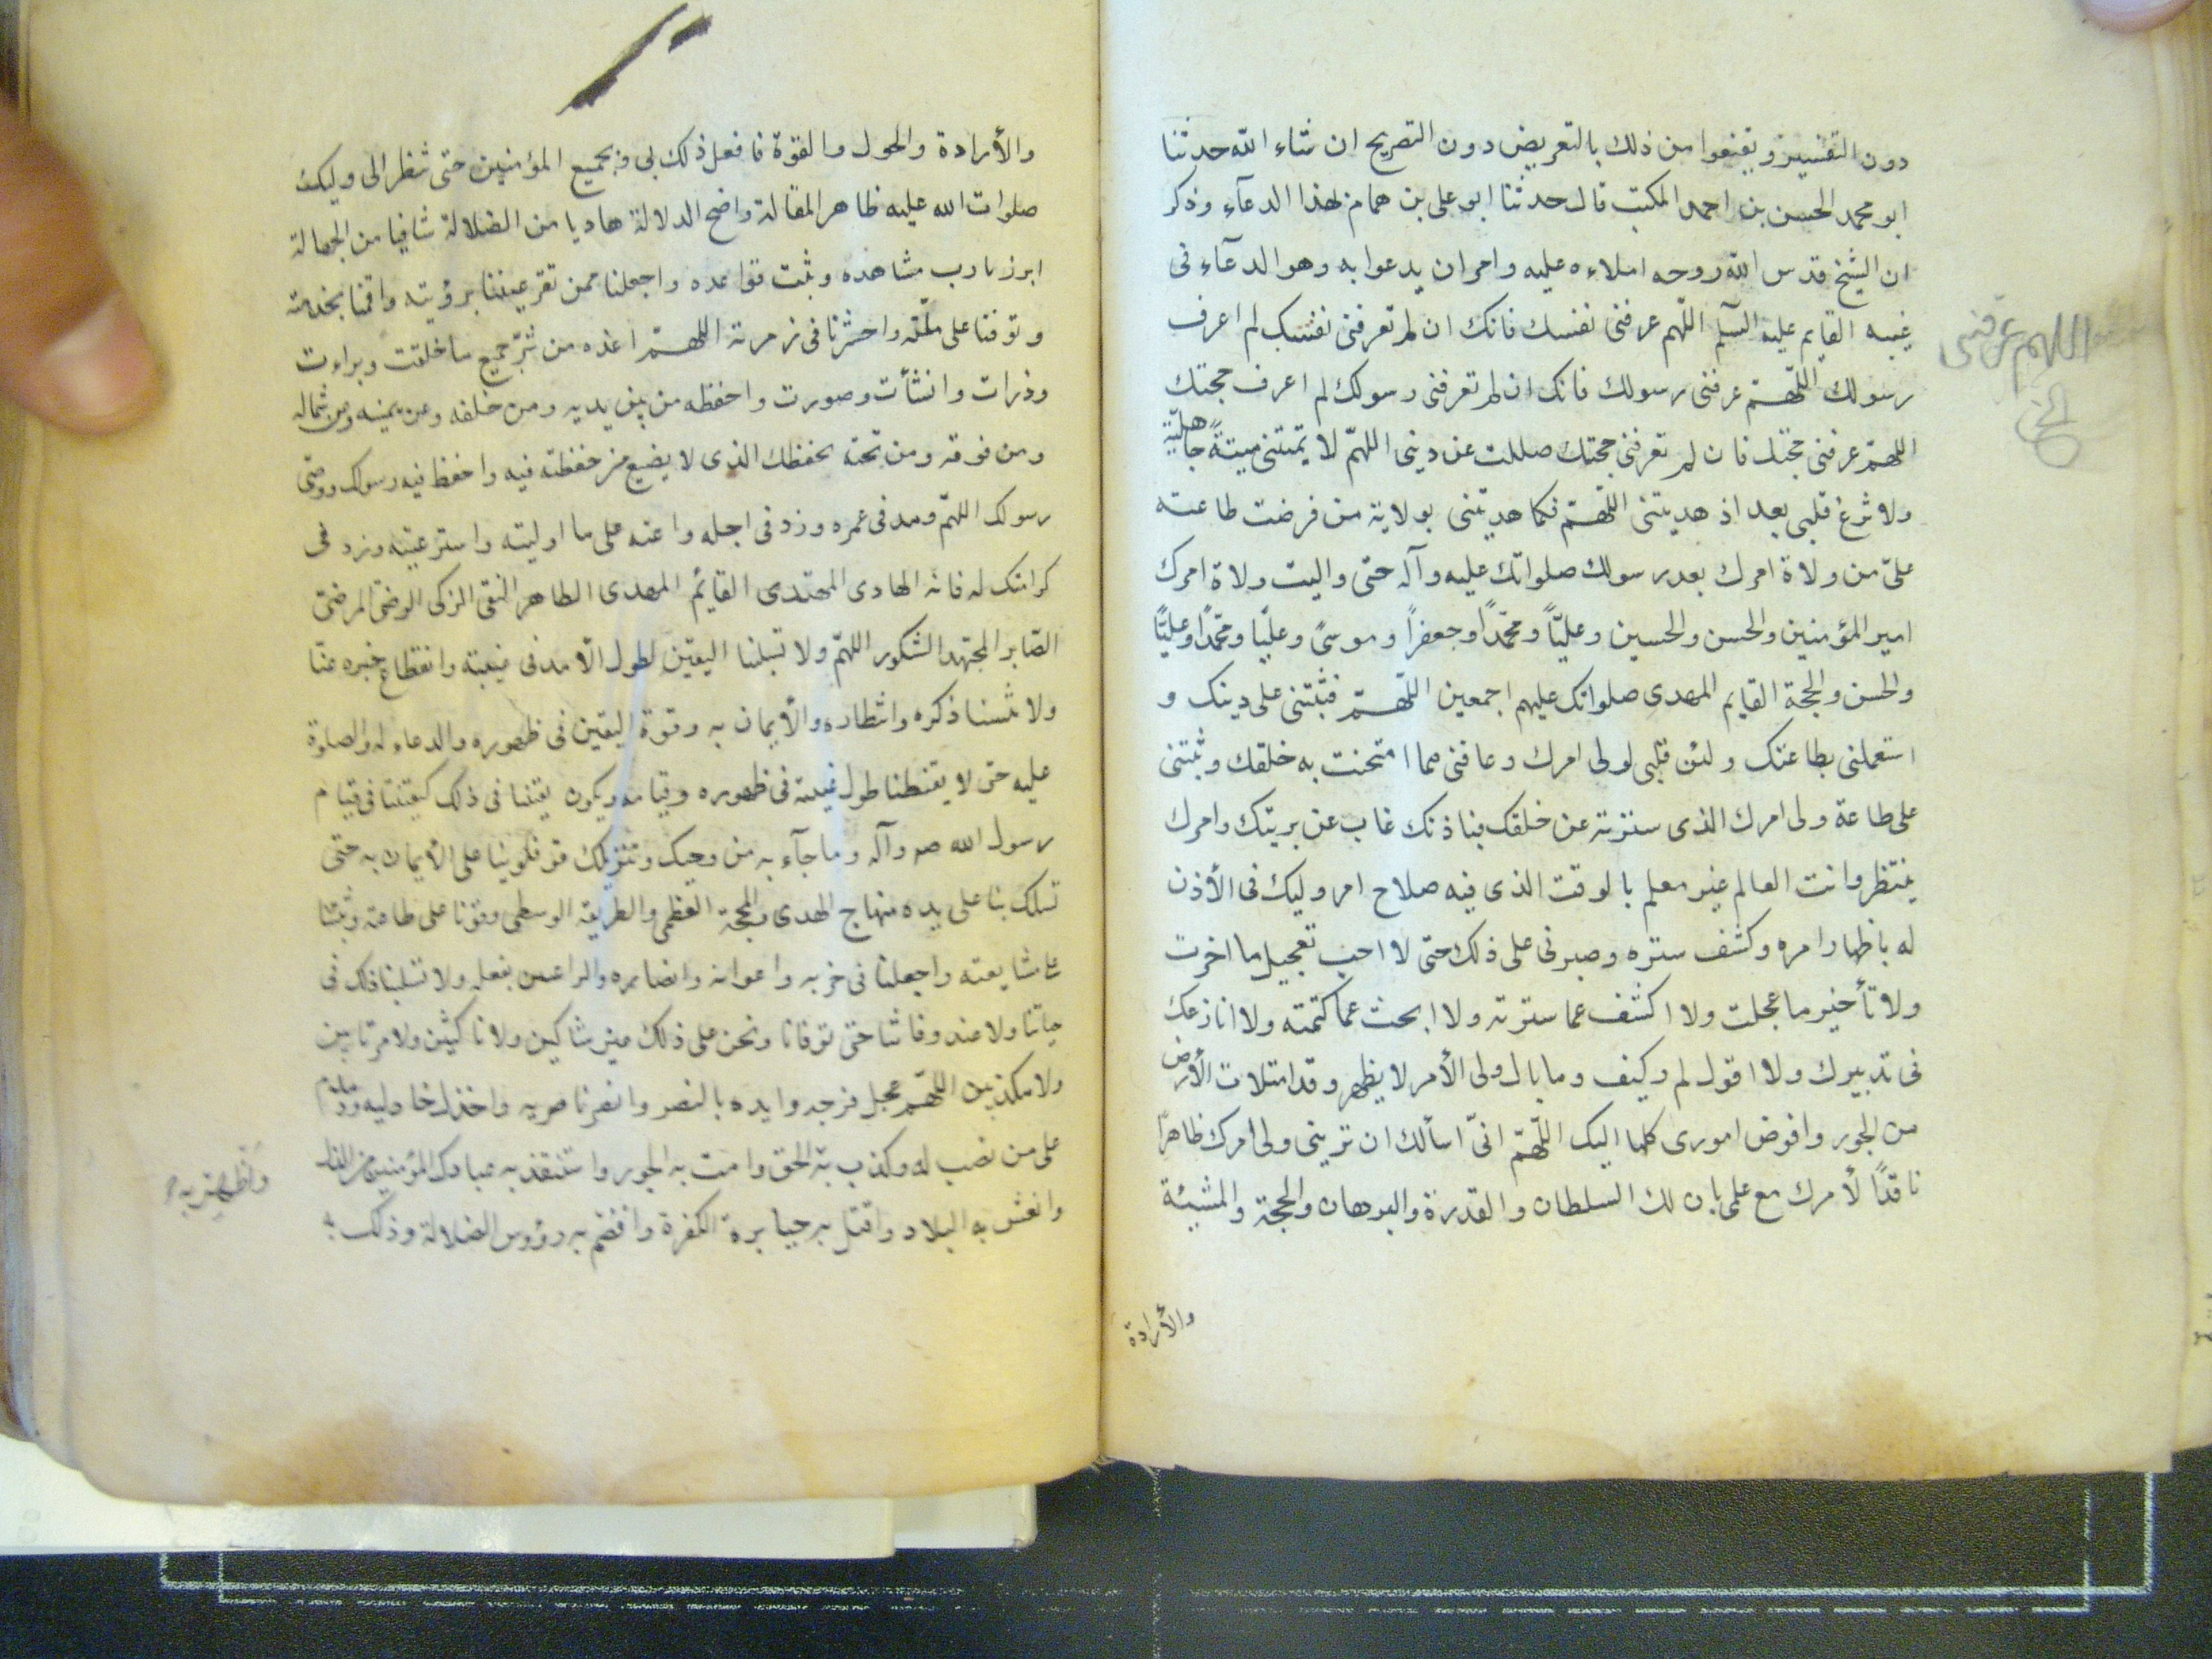 دون التفسير ويقنعوا من ذلك بالتعريض دون التصريح ان شاء الله حدثنا
ابو محمد الحسن بن احمد المكتب قال حدثنا ابو على بن همام بهذا الدعآء وذكر
ان الشيخ قدس الله روحه املاءه عليه وامره ان يدعوا به وهو الدعآء فى
غيبه القايم عليه السلم اللّهم عرفنى نفسك فانك ان لم تعرفنى نفسك لم اعرف
رسولك اللّهمّ عرفنى رسولك فانك ان لم تعرفنى رسولك لم اعرف حجتك
اللهمّ عرفنى حجتك فان لم تعرفنى حجتك ضللت عن دينى اللهمّ لا تمتنى ميتةً جاهليّة
ولا تزغ قلبى بعد اذ هديتنى اللّهمّ فكما هديتنى بولاية من فرضت طاعته
علىّ من ولاة امرك بعد رسولك صلواتك عليه وآله حتى واليت ولاة امرك
امير المؤمنين والحسن والحسين وعليّاً ومحمّداً وجعفراً وموسىً وعليّا ومحمّداً وعليّاً
والحسن والحجة القايم المهدى صلواتك عليهم اجمعين اللّهمّ فثبتنى على دينك و
استعملنى بطاعتك ولين قلبى لولى امرك وعافنى مما امتحنت به خلقك وثبتنى
على طاعة ولى امرك الذى سترته عن خلقك فباذنك غاب عن بريتك وامرك
ينتظر وانت العالم غير معلم بالوقت الذى فيه صلاح امر وليك فى الأذن
له باظهار امره وكشف ستره وصبرنى على ذلك حتى لا احب تعجيل ما اخرت
ولا تأخير ما عجلت ولا اكشف عما سترته ولا ابحث عما كتمته ولا انازعك
فى تدبيرك ولا اقول لم وكيف وما بال ولى الأمر لا يظهر وقد امتلات الأرض
من الجور وافوض امورى كلها اليك اللّهمّ انىّ اسألك ان ترينى ولى امرك ظاهراً
نافذاً لأمرك مع علمى بان لك السلطان والقدرة والبرهان والحجة والمشيئة
والأرادة
اللهم عرّفنى
الخ
والأرادة والحول والقوة فافعل ذلك بى وبجميع المؤمنين حتى ننظر الى وليك
صلوات الله عليه ظاهر المقالة واضح الدلالة هاديا من الضلالة شافيا من الجهالة
ابرز يا رب مشاهده وثبت قواعده واجعلنا ممن تقر عيننا برؤيته واقمنا بخدمته
وتوفنا على ملّته واحشرنا فى زمرته اللهمّ اعذه من شرّ جميع ما خلقت وبراءت
وذرات وانشأت وصورت واحفظه من بين يديه ومن خلفه وعن يمينه وعن شماله
ومن فوقه ومن تحته بحفظك الذى لا يضيع من حفظته فيه واحفظ فيه رسولك ووصى
رسولك اللهمّ ومد فى عمره وزد فى اجله واعنه على ما اوليته واسترعيته وزد فى
كرامتك له فانه الهادى المهتدى القايم المهدى الطاهر النقى الزكى الرضى المرضى
الصّابر المجتهد الشكور اللهمّ ولا تسلبنا اليقين لطول الأمد فى غيبته وانقطاع خبره عنّا
ولا تنسنا ذكره وانتظاره والأيمان به وقوة اليقين فى ظهوره والدعاء له والصلوة
عليه حتى لا يقنطنا طول غيبته فى ظهوره وقيامه ويكون يقيننا فى ذلك كيقيننا فى قيام
رسول الله ص وآله وما جآء به من وحيك وتنزيلك قو قلوبنا على الأيمان به حتى
تسلك بنا على يده منهاج الهدى والمحجة العظمى والطريقة الوسطى وقونا على طاعته وثبتنا
على مشايعته واجعلنا فى حزبه واعوانه وانصاره والراضين بفعله ولا تسلبنا ذلك فى
حياتنا ولا عند وفاتنا حتى توفانا ونحن على ذلك غير شاكين ولا ناكثين ولا مرتابين
ولا مكذبين اللّهمّ عجل فرجه وايده بالنصر وانصر ناصريه واخذل خاذليه ودمدم
على من نصب له وكذب به الحق وامت به الجور واستنقذ به عبادك المؤمنين من الذل
وانعش به البلاد واقتل به جبابرة الكفرة واقصم به رؤوس الضلالة وذلك به
واظهر به